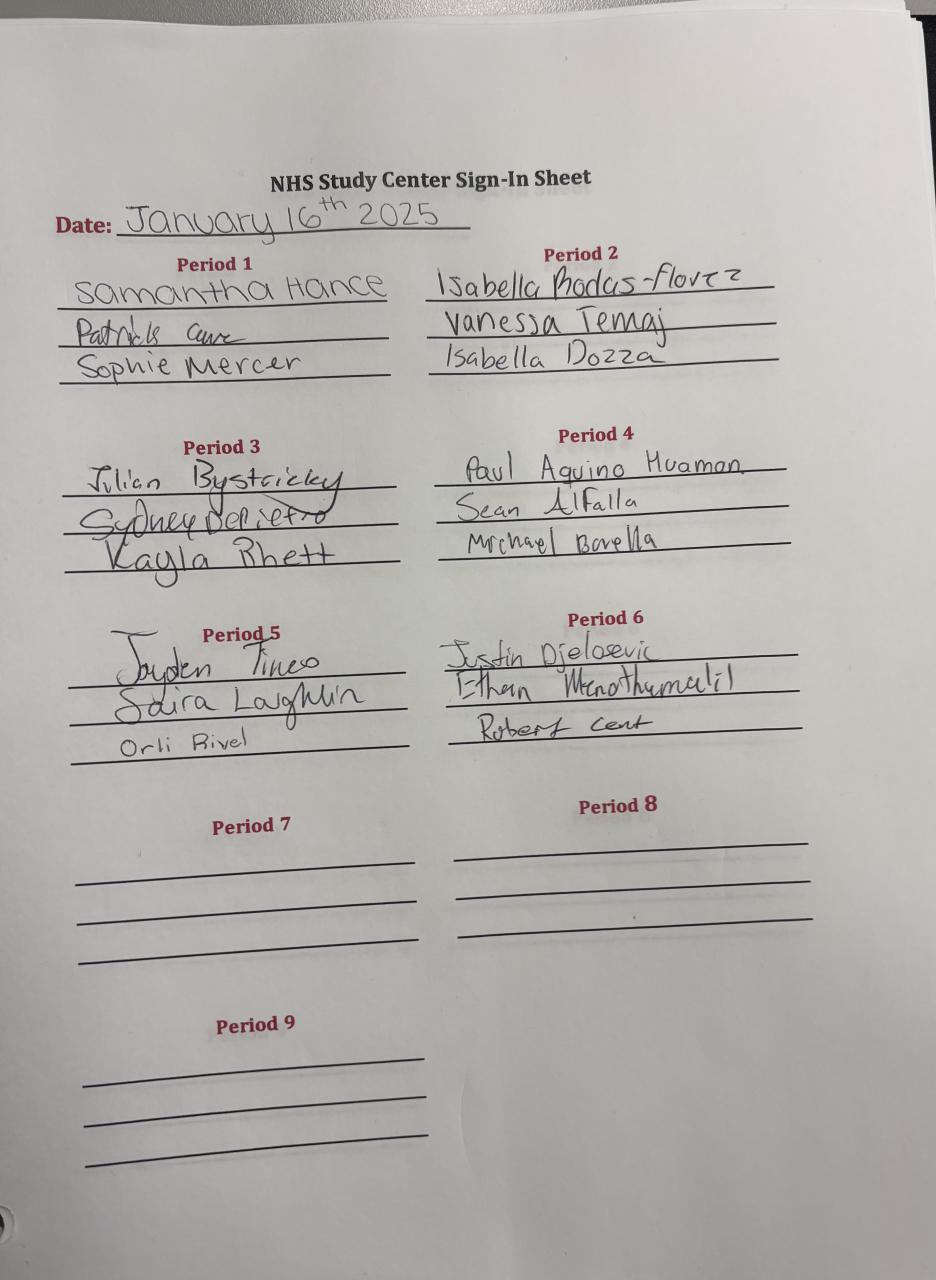 NHS Study Center Sign-In Sheet
Date: January 16th 2025
Period 1
Samantha Hance
Patrick
Sophie Mercer
Period 2
Isabella Rodas-florez
Vanessa Temaj
Isabella Dozza
Period 3
Julian Bystricky
Sydney DePietro
Kayla Rhett
Period 4
Paul Aquino Huaman
Sean Alfalla
Michael Borella
Period 5
Jayden Tineo
Saira Laughlin
Orli Rivel
Period 6
Justin Djelosevic
Ethan
Robert Cent
Period 7
Period 8
Period 9